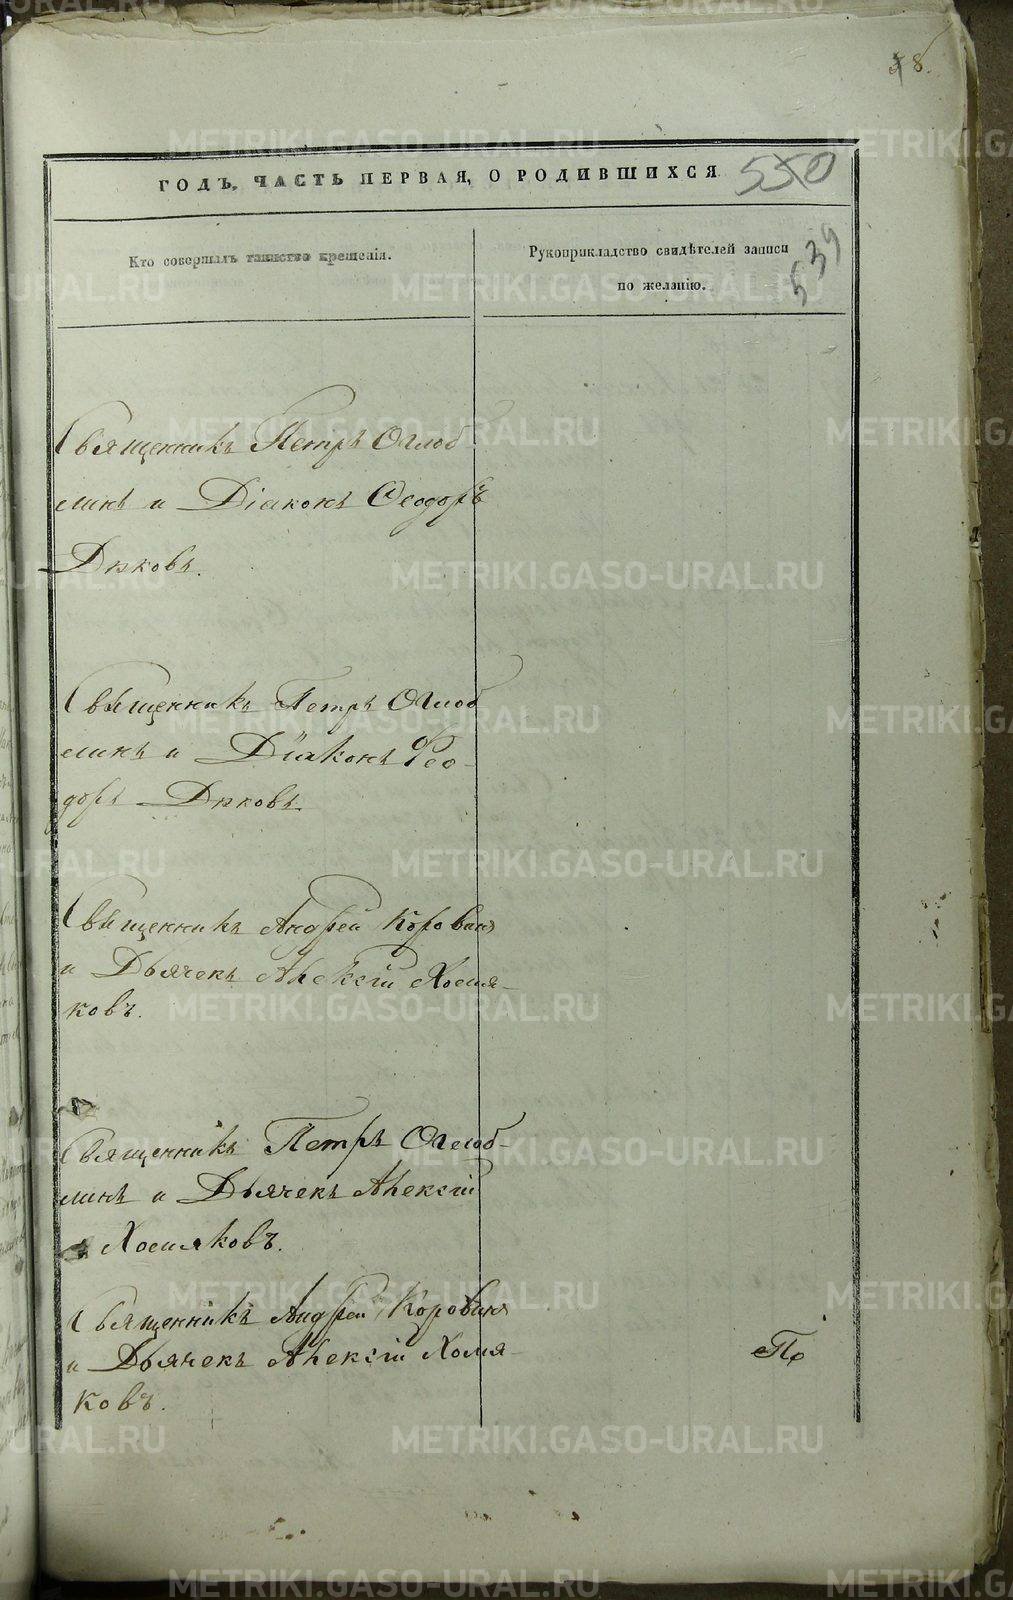 8.
ГОДЪ, ЧАСТЬ ПЕРВАЯ, О РОДИВШИХСЯ
550
539
Кто совершалъ таинство крещенія.
Рукоприкладство свидѣтелей записи
по желанію.
Священникъ Петръ Оглоб
линъ и Діаконъ Ѳеодоръ
Дѣковъ.
Священникъ Петръ Оглоб
линъ и Діаконъ Ѳео-
доръ Дѣковъ.
Священникъ Андрей Коровинъ
и Дьячекъ Алексій Хомя-
ковъ.
Священникъ Петръ Оглоб-
линъ и Дьячекъ Алексій
Хомяковъ.
Священникъ Андрей Коровинъ
и Дьячекъ Алексій Хомя-
ковъ.
METRIKI.GASO-URAL.RU